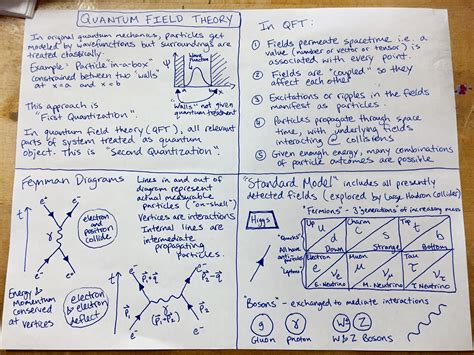 QUANTUM FIELD THEORY
In original quantum mechanics, particles get
modeled by wavefunctions but surroundings are
treated classically.
Example "Particle-in-a-box"
constrained between two "walls"
at x=a and x=b
This approach is
"First Quantization".
Wave
Function
a b
"Walls" not given
quantum treatment
In quantum field theory (QFT), all relevant
parts of system treated as quantum
object. This is "Second Quantization".
In QFT:
① Fields permeate spacetime i.e. a
value (number or vector or tensor) is
associated with every point.
② Fields are "coupled" so they
affect each other
③ Excitations or ripples in the fields
manifest as particles.
④ Particles propagate through space
time, with underlying fields
interacting @ collisions
⑤ Given enough energy, many combinations
of particle outcomes are possible
Feynman Diagrams
Lines in and out of
diagram represent
actual measurable
particles ("on-shell")
Vertices are interactions
Internal lines are
intermediate
propagating
particles.
t
e⁻ e⁺
γ
e⁻ e⁺
electron
and
positron
collide
Energy &
Momentum
conserved
at vertices
electron
& electron
deflect
t
e⁻ e⁻
e⁻ e⁻
"Standard Model" includes all presently
detected fields (explored by Large Hadron Collider)
Higgs
"Fermions" - 3 generations of increasing mass
"Quarks"
All have
antiparticles
"Leptons"
Up Charm Top
u c t
d s b
Down Strange Bottom
Electron Muon Tau
e μ τ
νe νμ ντ
E. Neutrino M. Neutrino T. Neutrino
"Bosons" - exchanged to mediate interactions
g γ W± Z
Gluon photon W & Z Bosons